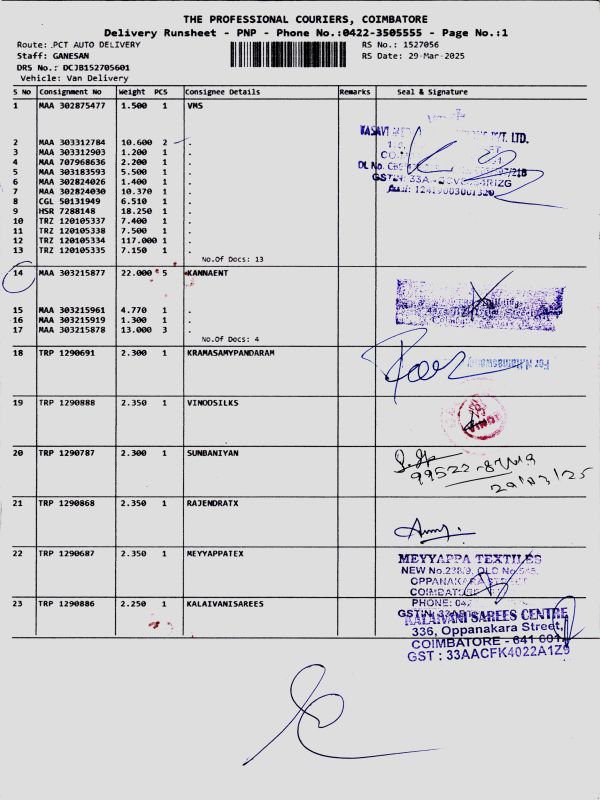 THE PROFESSIONAL COURIERS, COIMBATORE
Delivery Runsheet - PNP - Phone No.:0422-3505555 - Page No.:1
Route: PCT AUTO DELIVERY RS No.: 1527056
Staff: GANESAN RS Date: 29-Mar-2025
DRS No.: DCJB152705601
Vehicle: Van Delivery
S No Consignment No Weight PCS Consignee Details Remarks Seal & Signature
1 MAA 302875477 1.500 1 VMS
2 MAA 303312784 10.600 2 .
3 MAA 303312903 1.200 1 .
4 MAA 707968636 2.200 1 .
5 MAA 303183593 5.500 1 .
6 MAA 302824026 1.400 1 .
7 MAA 302824030 10.370 1 .
8 CGL 50131949 6.510 1 .
9 HSR 7288148 18.250 1 .
10 TRZ 120105337 7.400 1 .
11 TRZ 120105338 7.500 1 .
12 TRZ 120105334 117.000 1 .
13 TRZ 120105335 7.150 1 .
No.Of Docs: 13
PVT. LTD.
DL No.
14 MAA 303215877 22.000 5 KANNAENT
15 MAA 303215961 4.770 1 .
16 MAA 303215919 1.300 1 .
17 MAA 303215878 13.000 3 .
No.Of Docs: 4
18 TRP 1290691 2.300 1 KRAMASAMYPANDARAM
19 TRP 1290888 2.350 1 VINODSILKS
20 TRP 1290787 2.300 1 SUNBANIYAN
29/03/25
21 TRP 1290868 2.350 1 RAJENDRATX
22 TRP 1290687 2.350 1 MEYYAPPATEX
MEYYAPPA TEXTILES
NEW No.238/9, OLD No.
OPPANAKARA
PHONE:
23 TRP 1290886 2.250 1 KALAIVANISAREES
KALAIVANI SAREES CENTRE
336, Oppanakara Street,
COIMBATORE - 641 001
GST : 33AACFK4022A1Z9